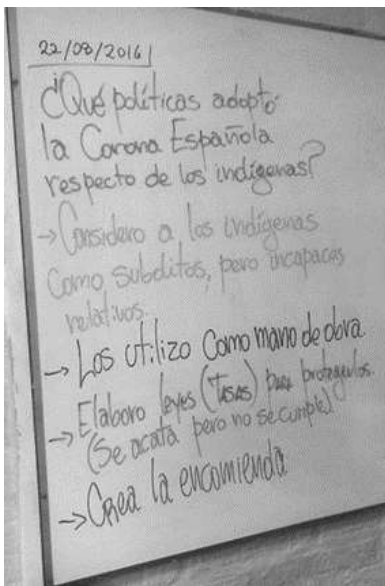 22/08/2016
¿Qué políticas adoptó
la Corona Española
respecto de los indígenas?
→ Considero a los indígenas
como subditos, pero incapaces
relativos.
→ Los utilizo como mano de obra.
→ Elaboro leyes (Tasas) para protegerlos.
(Se acata pero no se cumple)
→ Crea la encomienda